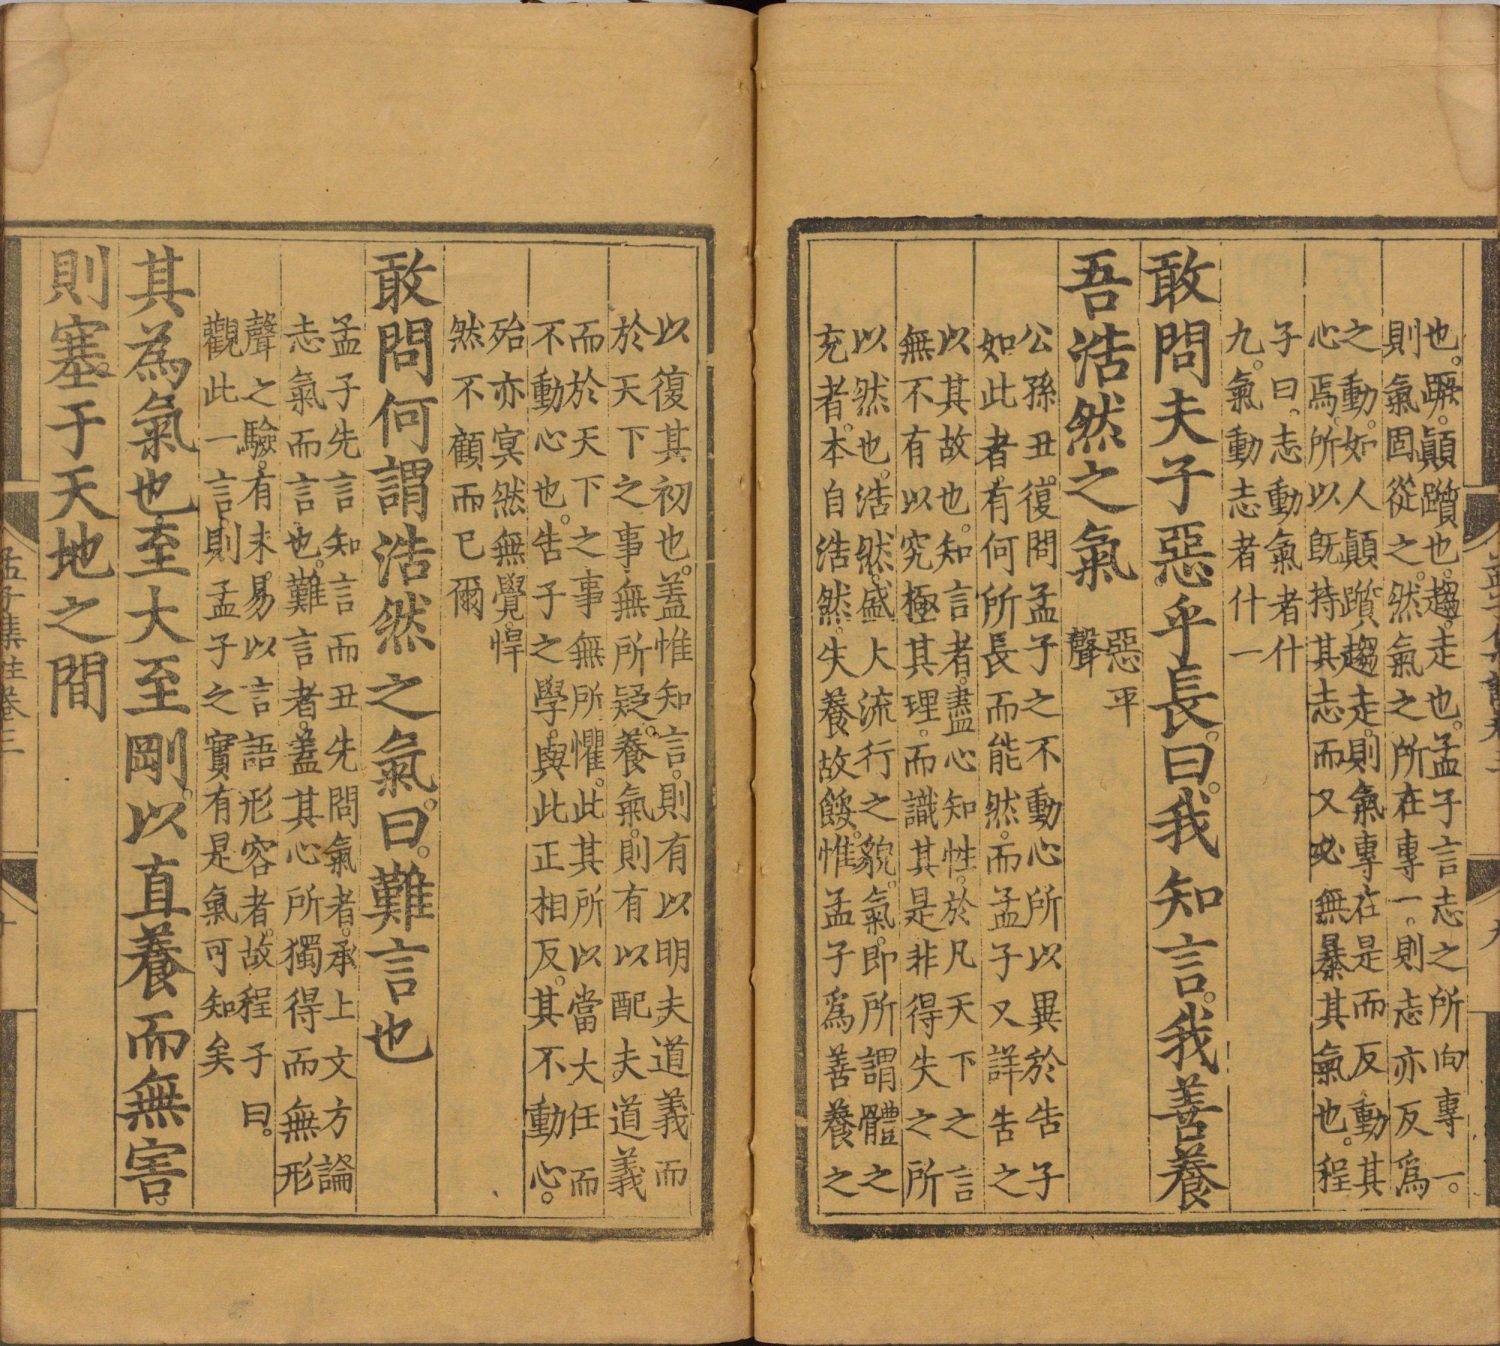 也。蹶。顛躓也。趨。走也。孟子言志之所向專一。
則氣固從之。然氣之所在專一。則志亦反爲
之動。如人顛躓趨走。則氣專在是而反動其
心焉。所以旣持其志而又必無暴其氣也。程
子曰。志動氣者什
九。氣動志者什一
敢問夫子惡乎長。曰。我知言。我善養
吾浩然之氣
惡平
聲
公孫丑復問孟子之不動心所以異於告子
如此者。有何所長而能然。而孟子又詳告之
以其故也。知言者。盡心知性。於凡天下之言
無不有以究極其理。而識其是非得失之所
以然也。浩然。盛大流行之貌。氣。即所謂體之
充者。本自浩然。失養故餒。惟孟子爲善養之
以復其初也。蓋惟知言。則有以明夫道義而
於天下之事無所疑。養氣。則有以配夫道義
而於天下之事無所懼。此其所以當大任而
不動心也。告子之學。與此正相反。其不動心。
殆亦冥然無覺。悍
然不顧而已爾
敢問何謂浩然之氣。曰。難言也
孟子先言知言而丑先問氣者。承上文方論
志氣而言也。難言者。蓋其心所獨得而無形
聲之驗。有未易以言語形容者。故程子曰。
觀此一言。則孟子之實有是氣可知矣
其為氣也至大至剛。以直養而無害。
則塞于天地之間
孟子集註卷三
十